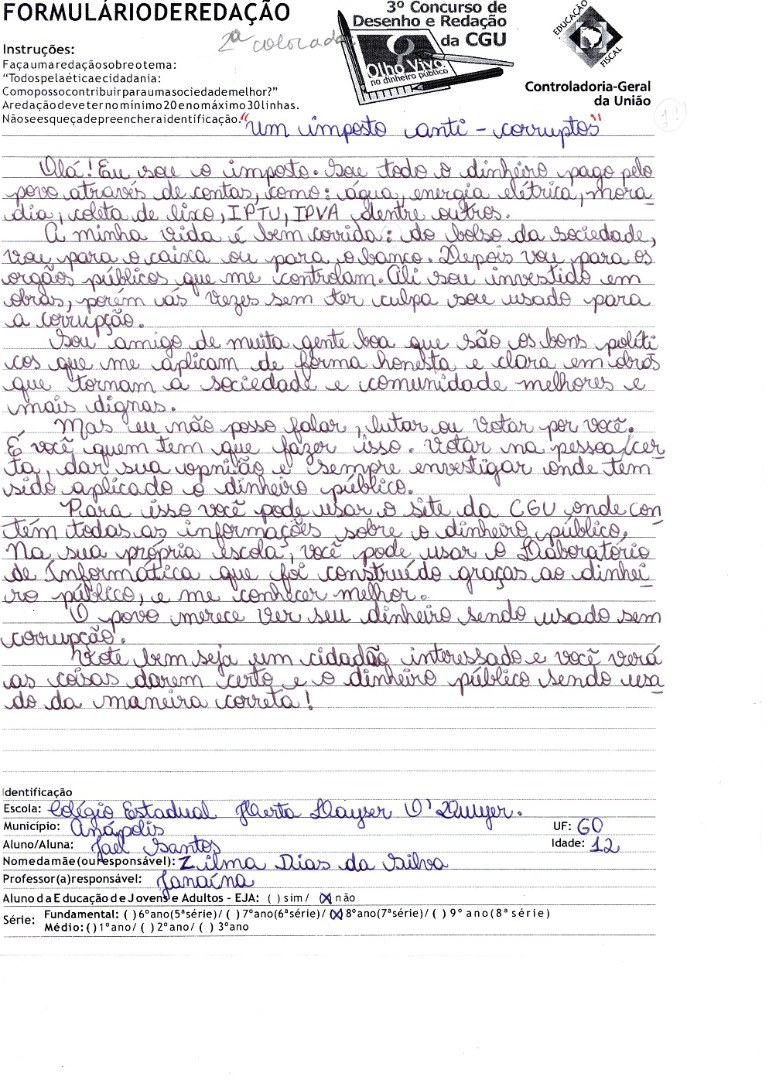 FORMULÁRIODEREDAÇÃO
2ª colocada
3º Concurso de
Desenho e Redação
da CGU
Olho Vivo
no dinheiro público
EDUCAÇÃO
FISCAL
Controladoria-Geral
da União
Instruções:
Façaumaredaçãosobreotema:
"Todospelaéticaecidadania:
Comopossocontribuirparaumasociedademelhor?"
Aredaçãodeveternomínimo20enomáximo30linhas.
Nãoseesqueçadepreencheraidentificação.
"Um imposto anti - corruptos"
Olá! Eu sou o imposto. Sou todo o dinheiro pago pelo
povo através de contas, como: água, energia elétrica, mora
dia, coleta de lixo, IPTU, IPVA dentre outros.
A minha vida é bem corrida: do bolso da sociedade,
vou para o caixa ou para o banco. Depois vou para os
orgãos públicos que me controlam. Ali sou investido em
obras, porém ás vezes sem ter culpa sou usado para
a corrupção.
Sou amigo de muita gente boa que são os bons políti
cos que me aplicam de forma honesta e clara em obras
que tornam a sociedade e comunidade melhores e
mais dignas.
Mas eu não posso falar, lutar ou votar por você.
É você quem tem que fazer isso. Votar na pessoa cer
ta, dar sua opnião e sempre envestigar onde tem
sido aplicado o dinheiro público.
Para isso você pode usar o site da CGU onde con
tém todas as informações sobre o dinheiro público.
Na sua própria escola, você pode usar o Laboratório
de Informática que foi construído graças ao dinhei
ro público, e me conhecer melhor.
O povo merece ver seu dinheiro sendo usado sem
corrupção.
Vote bem seja um cidadão interessado e você verá
as coisas darem certo e o dinheiro público sendo usa
do da maneira correta!
Identificação
Escola: Colégio Estadual Herta Layser O'Dwyer.
Município: Anápolis UF: GO
Aluno/Aluna: Jael Santos Idade: 12
Nomedamãe(ouresponsável): Zilma Dias da Silva
Professor(a)responsável: Janaína
AlunodaEducaçãodeJovense Adultos - EJA: ( ) sim/ (X) não
Série: Fundamental: ( )6ºano(5ªsérie)/ ( )7ºano(6ªsérie)/ (X)8ºano(7ªsérie)/ ( )9º ano(8ª série)
Médio:( )1ºano/ ( )2ºano/ ( )3ºano